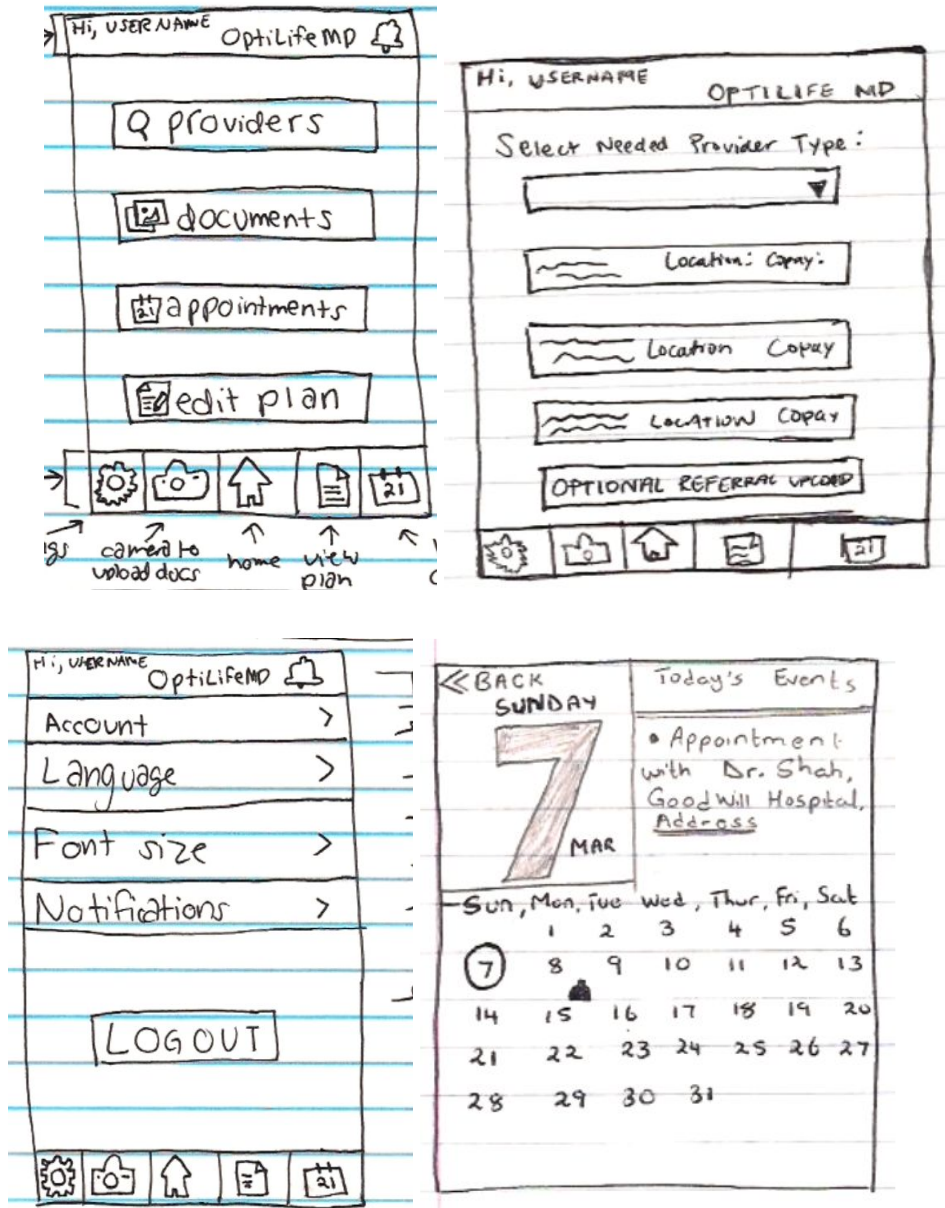 Hi, USERNAME OptiLifeMD
Q providers
documents
21 appointments
edit plan
21
gs
camera to
upload docs
home
view
plan
Hi, USERNAME
OPTILIFE MD
Select Needed Provider Type:
Location: Copay:
Location Copay
LOCATION COPAY
OPTIONAL REFERRAL UPLOAD
21
Hi, USERNAME
OptiLifeMD
Account >
Language >
Font size >
Notifications >
LOGOUT
21
<<BACK
SUNDAY
7
MAR
Today's Events
• Appointment
with Dr. Shah,
GoodWill Hospital,
Address
Sun, Mon, Tue Wed, Thur, Fri, Sat
1 2 3 4 5 6
7 8 9 10 11 12 13
14 15 16 17 18 19 20
21 22 23 24 25 26 27
28 29 30 31